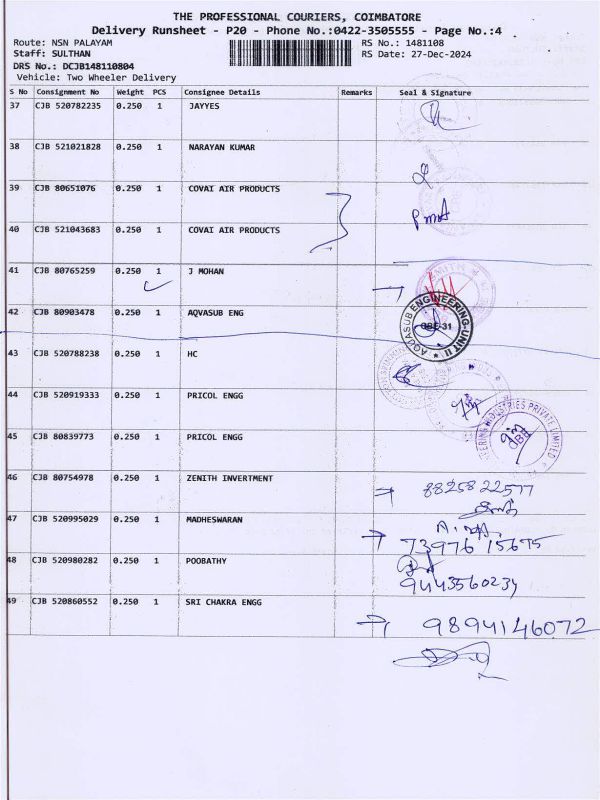 THE PROFESSIONAL COURIERS, COIMBATORE
Delivery Runsheet - P20 - Phone No.:0422-3505555 - Page No.:4
Route: NSN PALAYAM RS No.: 1481108
Staff: SULTHAN RS Date: 27-Dec-2024
DRS No.: DCJB148110804
Vehicle: Two Wheeler Delivery
S No Consignment No Weight PCS Consignee Details Remarks Seal & Signature
37 CJB 520782235 0.250 1 JAYYES
38 CJB 521021828 0.250 1 NARAYAN KUMAR
39 CJB 80651076 0.250 1 COVAI AIR PRODUCTS
40 CJB 521043683 0.250 1 COVAI AIR PRODUCTS
41 CJB 80765259 0.250 1 J MOHAN
42 CJB 80903478 0.250 1 AQVASUB ENG
AQUASUB ENGINEERING-UNIT II
CBE-31
43 CJB 520788238 0.250 1 HC
44 CJB 520919333 0.250 1 PRICOL ENGG
45 CJB 80839773 0.250 1 PRICOL ENGG
INDUSTRIES PRIVATE LIMITED
46 CJB 80754978 0.250 1 ZENITH INVERTMENT
8825822577
47 CJB 520995029 0.250 1 MADHESWARAN
73976 15675
48 CJB 520980282 0.250 1 POOBATHY
9443560234
49 CJB 520860552 0.250 1 SRI CHAKRA ENGG
9894146072